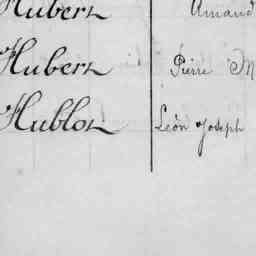 Hubert Amand
Hubert Pierre M
Hublot Léon Joseph